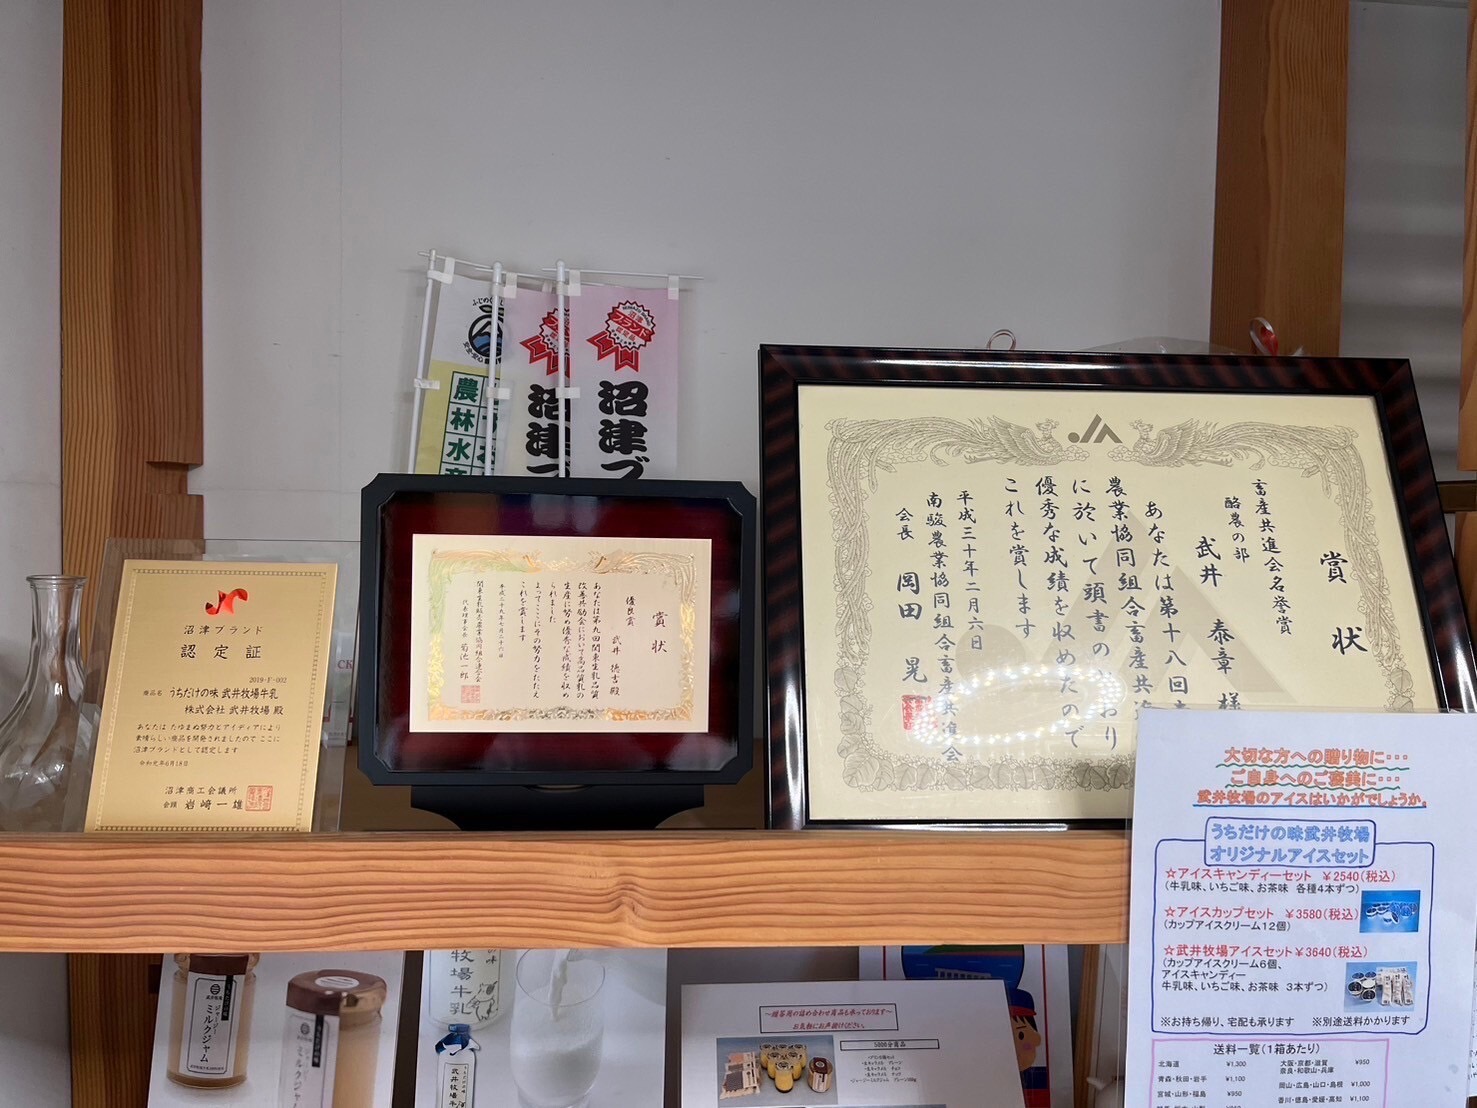 沼津ブランド
認定証
2019-F-002
商品名 うちだけの味 武井牧場牛乳
株式会社 武井牧場 殿
あなたは たゆまぬ努力とアイディアにより
素晴らしい商品を開発されましたので ここに
沼津ブランドとして認定します
令和元年6月18日
沼津商工会議所
会頭 岩崎一雄
農林水産
ブランド
沼津ブ
沼津ブランド
沼津ブ
賞状
優良賞
武井 徳吉 殿
あなたは第九回関東生乳品質
改善共励会において高品質乳の
生産に努め優秀な成績を収め
られました
よってここにその努力をたたえ
これを賞します
平成二十九年七月二十六日
関東生乳販売農業協同組合連合会
代表理事会長 菊池一郎
賞状
畜産共進会名誉賞
酪農の部
武井 泰章 様
あなたは第十八回
農業協同組合畜産共進
に於いて頭書の おり
優秀な成績を収めたので
これを賞します
平成三十年二月六日
南駿農業協同組合畜産共進会
会長 岡田 晃
大切な方への贈り物に・・・
ご自身へのご褒美に・・・
武井牧場のアイスはいかがでしょうか。
うちだけの味武井牧場
オリジナルアイスセット
☆アイスキャンディーセット ¥2540(税込)
(牛乳味、いちご味、お茶味 各種4本ずつ)
☆アイスカップセット ¥3580(税込)
(カップアイスクリーム12個)
☆武井牧場アイスセット¥3640(税込)
(カップアイスクリーム6個、
アイスキャンディー
牛乳味、いちご味、お茶味 3本ずつ)
※お持ち帰り、宅配も承ります ※別途送料かかります
送料一覧(1箱あたり)
北海道 ¥1,300
青森・秋田・岩手 ¥1,100
宮城・山形・福島 ¥950
大阪・京都・滋賀
奈良・和歌山・兵庫 ¥950
岡山・広島・山口・島根 ¥1,000
香川・徳島・愛媛・高知 ¥1,100
ジャージー
ミルクジャム
牧場牛乳
武井牧場牛
～贈答用の詰め合わせ商品も承っております～
お気軽にお声掛けください。